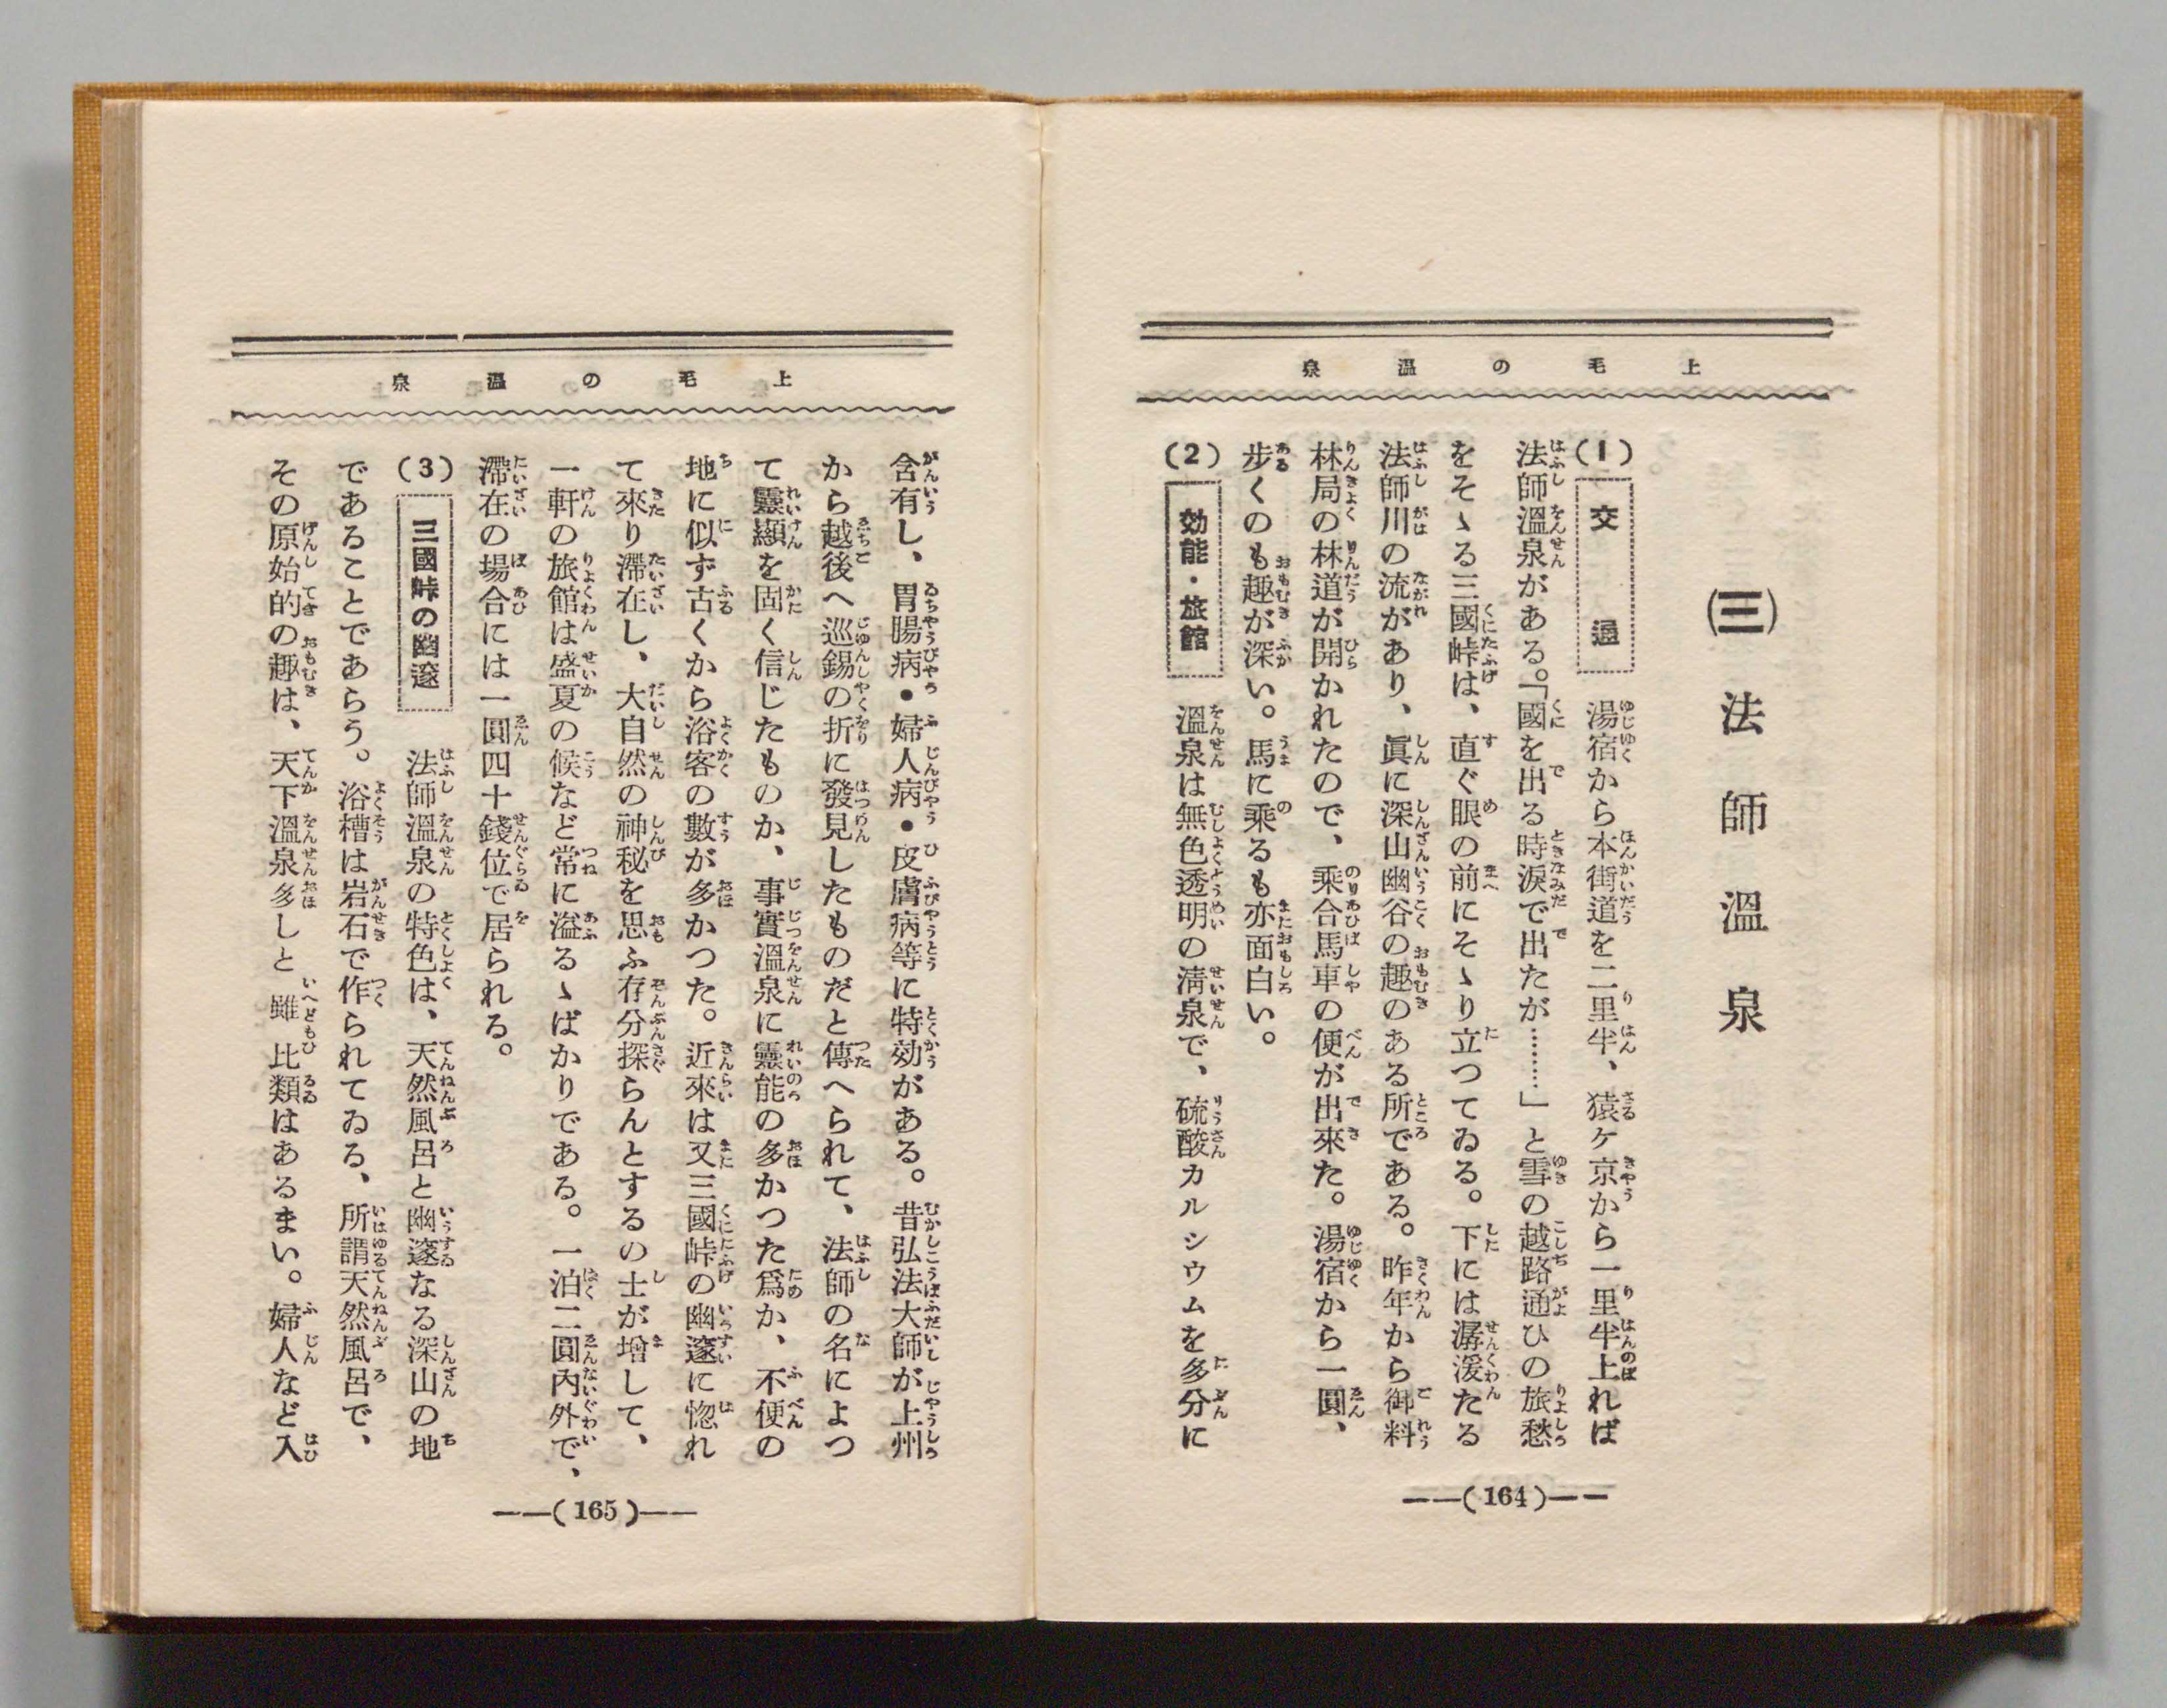 上毛の溫泉
㈢ 法師溫泉
(1) 交通 湯宿から本街道を二里半、猿ケ京から一里半上れば
法師溫泉がある。「國を出る時淚で出たが………」と雪の越路通ひの旅愁
をそゝる三國峠は、直ぐ眼の前にそゝり立つてゐる。下には潺湲たる
法師川の流があり、眞に深山幽谷の趣のある所である。昨年から御料
林局の林道が開かれたので、乘合馬車の便が出來た。湯宿から一圓、
步くのも趣が深い。馬に乘るも亦面白い。
(2) 効能・旅館 溫泉は無色透明の淸泉で、硫酸カルシウムを多分に
——(164)——
上毛の溫泉
含有し、胃腸病・婦人病・皮膚病等に特効がある。昔弘法大師が上州
から越後へ巡錫の折に發見したものだと傳へられて、法師の名によつ
て靈顯を固く信じたものか、事實溫泉に靈能の多かつた爲か、不便の
地に似ず古くから浴客の數が多かつた。近來は又三國峠の幽邃に惚れ
て來り滯在し、大自然の神秘を思ふ存分探らんとするの士が增して、
一軒の旅館は盛夏の候など常に溢るゝばかりである。一泊二圓內外で、
滯在の場合には一圓四十錢位で居られる。
(3) 三國峠の幽邃 法師溫泉の特色は、天然風呂と幽邃なる深山の地
であることであらう。浴槽は岩石で作られてゐる、所謂天然風呂で、
その原始的の趣は、天下溫泉多しと雖比類はあるまい。婦人など入
——(165)——